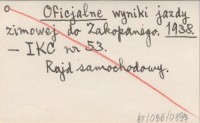 Oficjalne wyniki jazdy
zimowej do Zakopanego. 1938.
— IKC nr 53.
Rajd samochodowy.